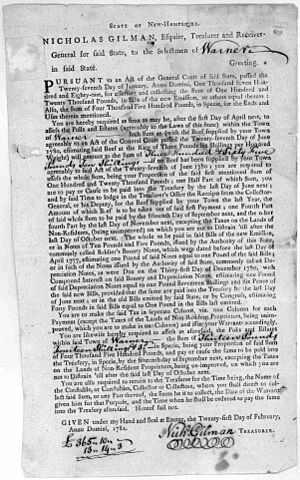 STATE OF NEW-HAMPSHIRE.
NICHOLAS GILMAN, Esquire, Treasurer and Receiver-
General for said State, to the Selectmen of Warner
in said State. Greeting.
PURSUANT to an Act of the General Court of said State, passed the
Twenty-seventh Day of January, Anno Domini, One Thousand Seven Hun-
dred and Eighty-one, for assessing and collecting the Sum of One Hundred and
Twenty Thousand Pounds, in Bills of the new Emission, or others equal thereto;
Also, the Sum of Four Thousand Five Hundred Pounds, in Specie, for the Ends and
Uses therein mentioned.
You are hereby required as soon as may be, after the first Day of April next, to
assess the Polls and Estates (agreeably to the Laws of this State) within the Town
of Warner Such Sum as (with the Beef supplied by your Town
agreeably to an Act of the General Court called the Twenty-seventh Day of June
1780, estimating said Beef at the Rate of Three Pounds Six Shillings per Hundred
Weight) will amount to the Sum of Three Hundred & Sixty five
Pounds ten Shillings
agreeably to said Act of the Twenty-seventh Day of June 1780) you are required to
assess the whole Sum, being your Proportion of the said first mentioned Sum of
One Hundred and Twenty Thousand Pounds; one Half part of which Sum, you
are to pay or Cause to be paid into the Treasury by the last Day of June next;
and by said Time to lodge in the Treasurer's Office the Receipts from the Collector-
General, or his Deputy, for the Beef supplied by your Town the last Year, the
Amount of which Beef is to be taken out of said first Payment: one Fourth Part
of said whole Sum to be paid by the fifteenth Day of September next, and the other
fourth Part by the last Day of November next, excepting the Taxes on the Lands of
Non-Residents, (being unimproved) on which you are not to Distrain 'till after the
last Day of October next. The whole to be paid in said Bills of the new Emission,
or in Notes of Ten Pounds and Five Pounds, issued by the Authority of this State,
commonly called Soldier's Bounty Notes, which were dated before the last Day of
April 1777, estimating one Pound of said Notes equal to one Pound of the said Bills;
or in such of the Notes issued by the Authority of said State, commonly called De-
preciation Notes, as were Due on the Thirty-first Day of December 1780, with
Compound Interest on said Bounty and Depreciation Notes, estimating one Pound
of said Depreciation Notes equal to one Pound Seventeen Shillings and six Pence of
the said new Bills, provided that the same are paid into the Treasury by the last Day
of June next; or in the old Bills emitted by said State, or by Congress, estimating
Forty Pounds in said Bills equal to One Pound in the Bills last emitted.
You are to make the said Tax in seperate Column, viz. one Column for each
Payment (except the Taxes of the Lands of Non-Resident Proprietors, being unim-
proved, which you are to make in one Column) and issue your Warrant accordingly.
You are likewise hereby required to assess as aforesaid, the Polls and Estates
within said Town of Warner the Sum of Thirteen Pounds
fourteen Shillings & 3d in Specie, being your Proportion of said Sum
of Four Thousand Five Hundred Pounds, and pay or cause the same to be paid into
the Treasury, in Specie, by the fifteenth Day of September next, excepting the Taxes
on the Lands of Non-Resident Proprietors, being un-improved, on which you are
not to Distrain 'till after the last Day of October next.
You are also required to return to the Treasurer for the Time being, the Name of
the Constable, or Constables, Collector or Collectors, whom you shall direct to col-
lect said Sum, or any Part thereof, the Sum he is to collect, the Date of the Warrant
given him for that Purpose, and the Time when he shall be ordered to pay the same
into the Treasury aforesaid. Hereof fail not.
GIVEN under my Hand and Seal at Exeter, the Twenty-first Day of February,
Anno Domini, 1781.
Nich. Gilman TREASURER.
£ 365..10..
13..14..3